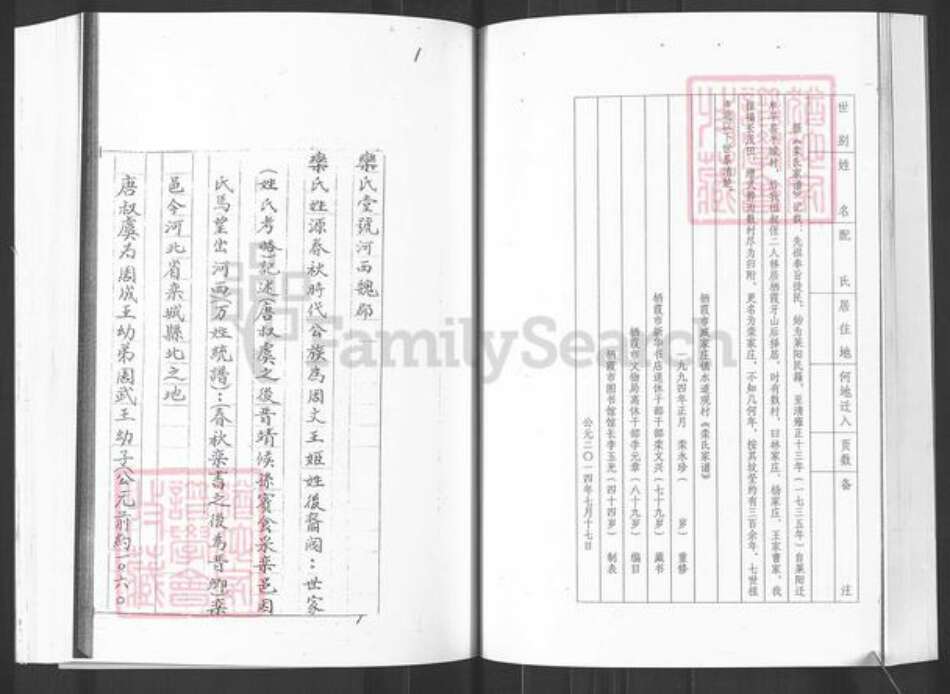 世别 姓名 配氏 居住地 何地迁入 页数 备注
据《栾氏家谱》记载，先祖奉旨徙民，始为莱阳民籍，至清雍正十三年（一七三五年）自莱阳迁
牟平县半城村，后我祖叔侄二人移居栖霞牙山后择居，时有数村，曰林家庄、杨家庄、王家曹家，我
祖福长茂田，增式静沟数村尽为归附，更名为栾家庄，不知几何年，按其坟茔约有三百余年，七世祖
栖霞市臧家庄镇水道观村《栾氏家谱》
一九九四年正月 栾永珍（ 岁）重修
栖霞市新华书店退休干部栾文兴（七十九岁）藏书
栖霞市文物局离休干部李元章（八十九岁）编目
栖霞市图书馆馆长李玉光（四十四岁）制表
公元二〇一四年七月十七日
1
欒氏堂號河西魏郡
欒氏姓源春秋時代公族為周文王姬姓後裔閥：世家
(姓氏考略)記述(唐叔虞之後晋靖候孫賓食采欒邑因
氏馬望出河西(万姓統譜)：(春秋欒書之後為晋卿)欒
邑今河北省栾城縣北之地
唐叔虞为周成王幼弟周武王幼子(公元前約一〇六〇
FamilySearch